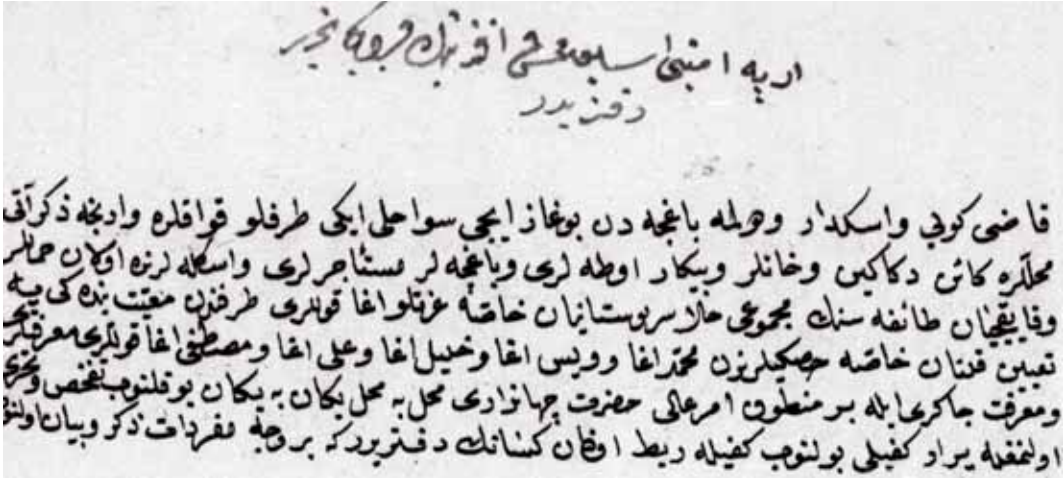 ارپه امینی سابق افندینك تحریر
دفتریدر
قاضی كویی واسكدار وهولمه باغچه دن بوغاز ایچی سواحلی ایكی طرفلو قواقلره وارنجه ذكر آتی
محللره كائن دكاكین وخانلر وبیكار اوطه لری وباغچه لر مستأجرلری واسكله لرنده اولان حماللر
وقایقجیان طائفه سنك مجموعی حالا سربوستانیان خاصه عزتلو اغا قوللری طرفندن معیت بنده كی یه
تعیین قلنان خاصه حصكیلرندن محمد اغا وویس اغا وخلیل اغا وعلی اغا ومصطفی اغا قوللری معرفتلری
ومعرفت چاكری ایله بر منطوق امر عالی حضرت جهانداری محل به محل یكان به یكان یوقلنوب تفحص وتحری
اولنمغله یراد كفیلی بولنوب كفیله ربط اولنان كسانك دفتریدر كه بر وجه مفردات ذكر وبیان اولنور